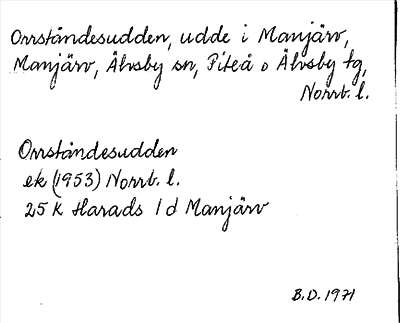 Orrståndesudden, udde i Manjärv,
Manjärv, Älvsby sn, Piteå o Älvsby tg,
Norrb. l.
Orrståndesudden
ek (1953) Norrb. l.
25 K Harads 1 d Manjärv
B.D. 1971